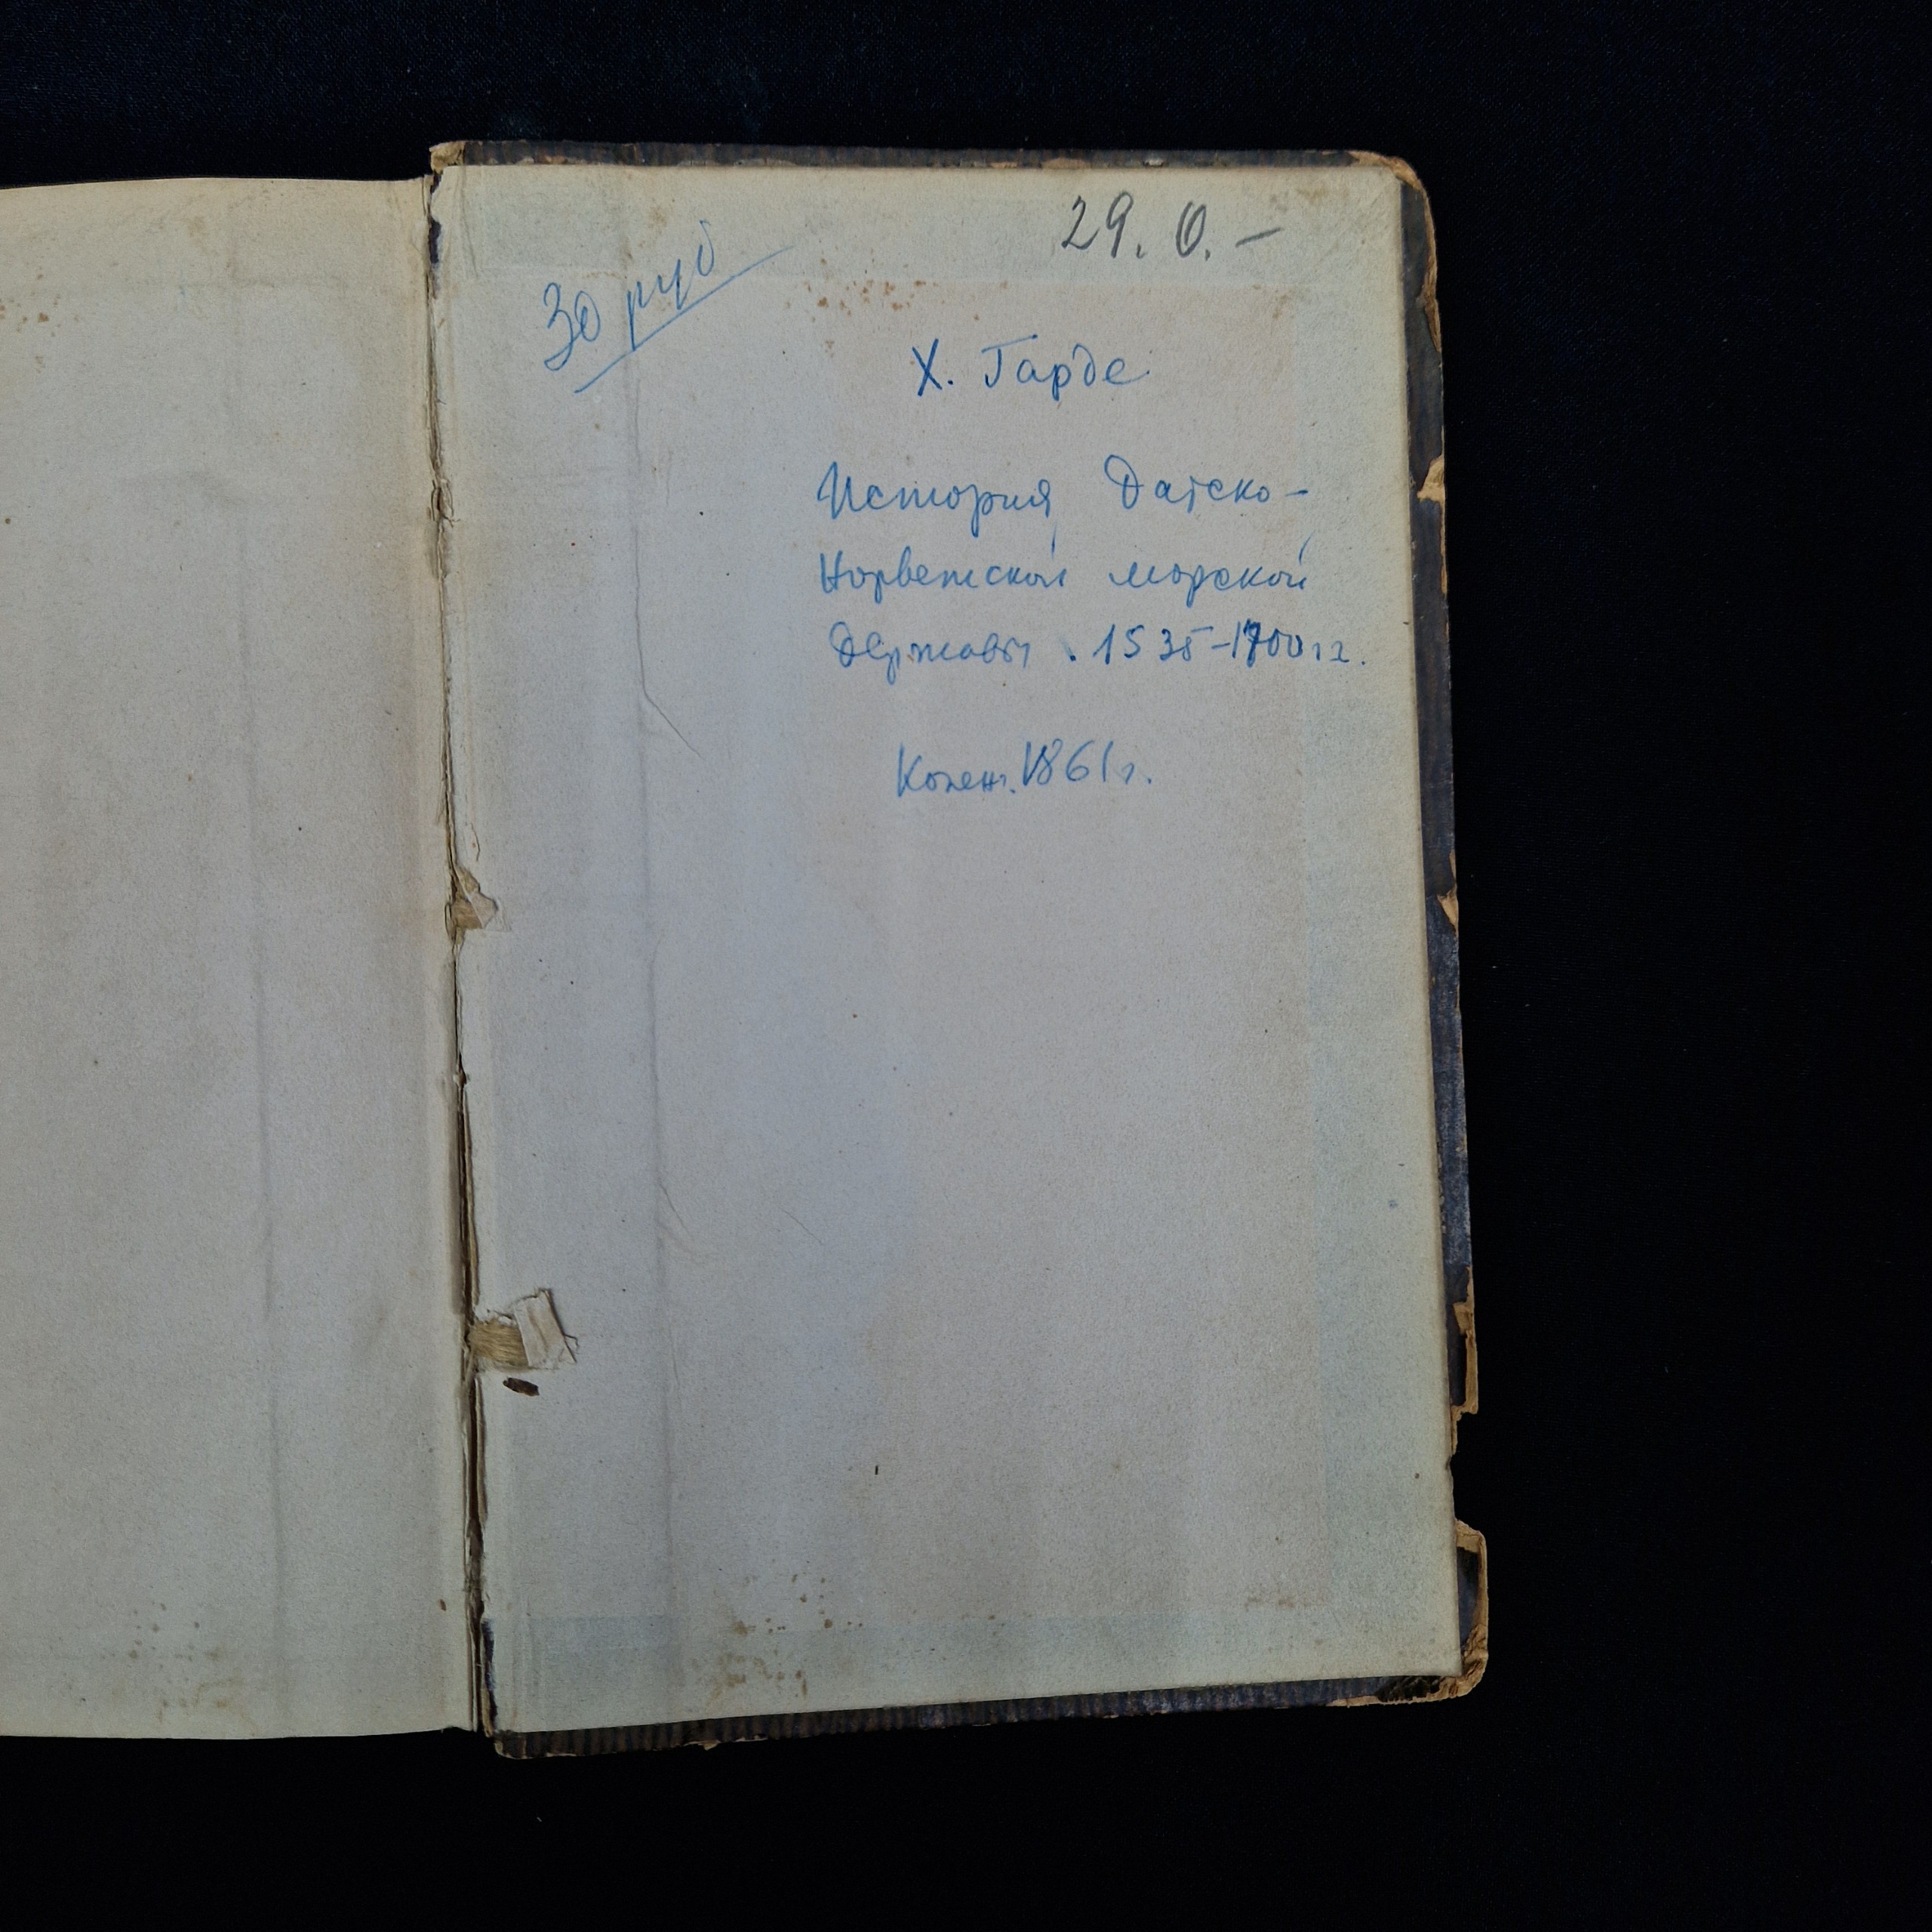 29. 0. –
30 руб
Х. Гарде
История Датско-
Норвежской морской
Державы. 1535–1700 гг.
Копенг. 1861 г.